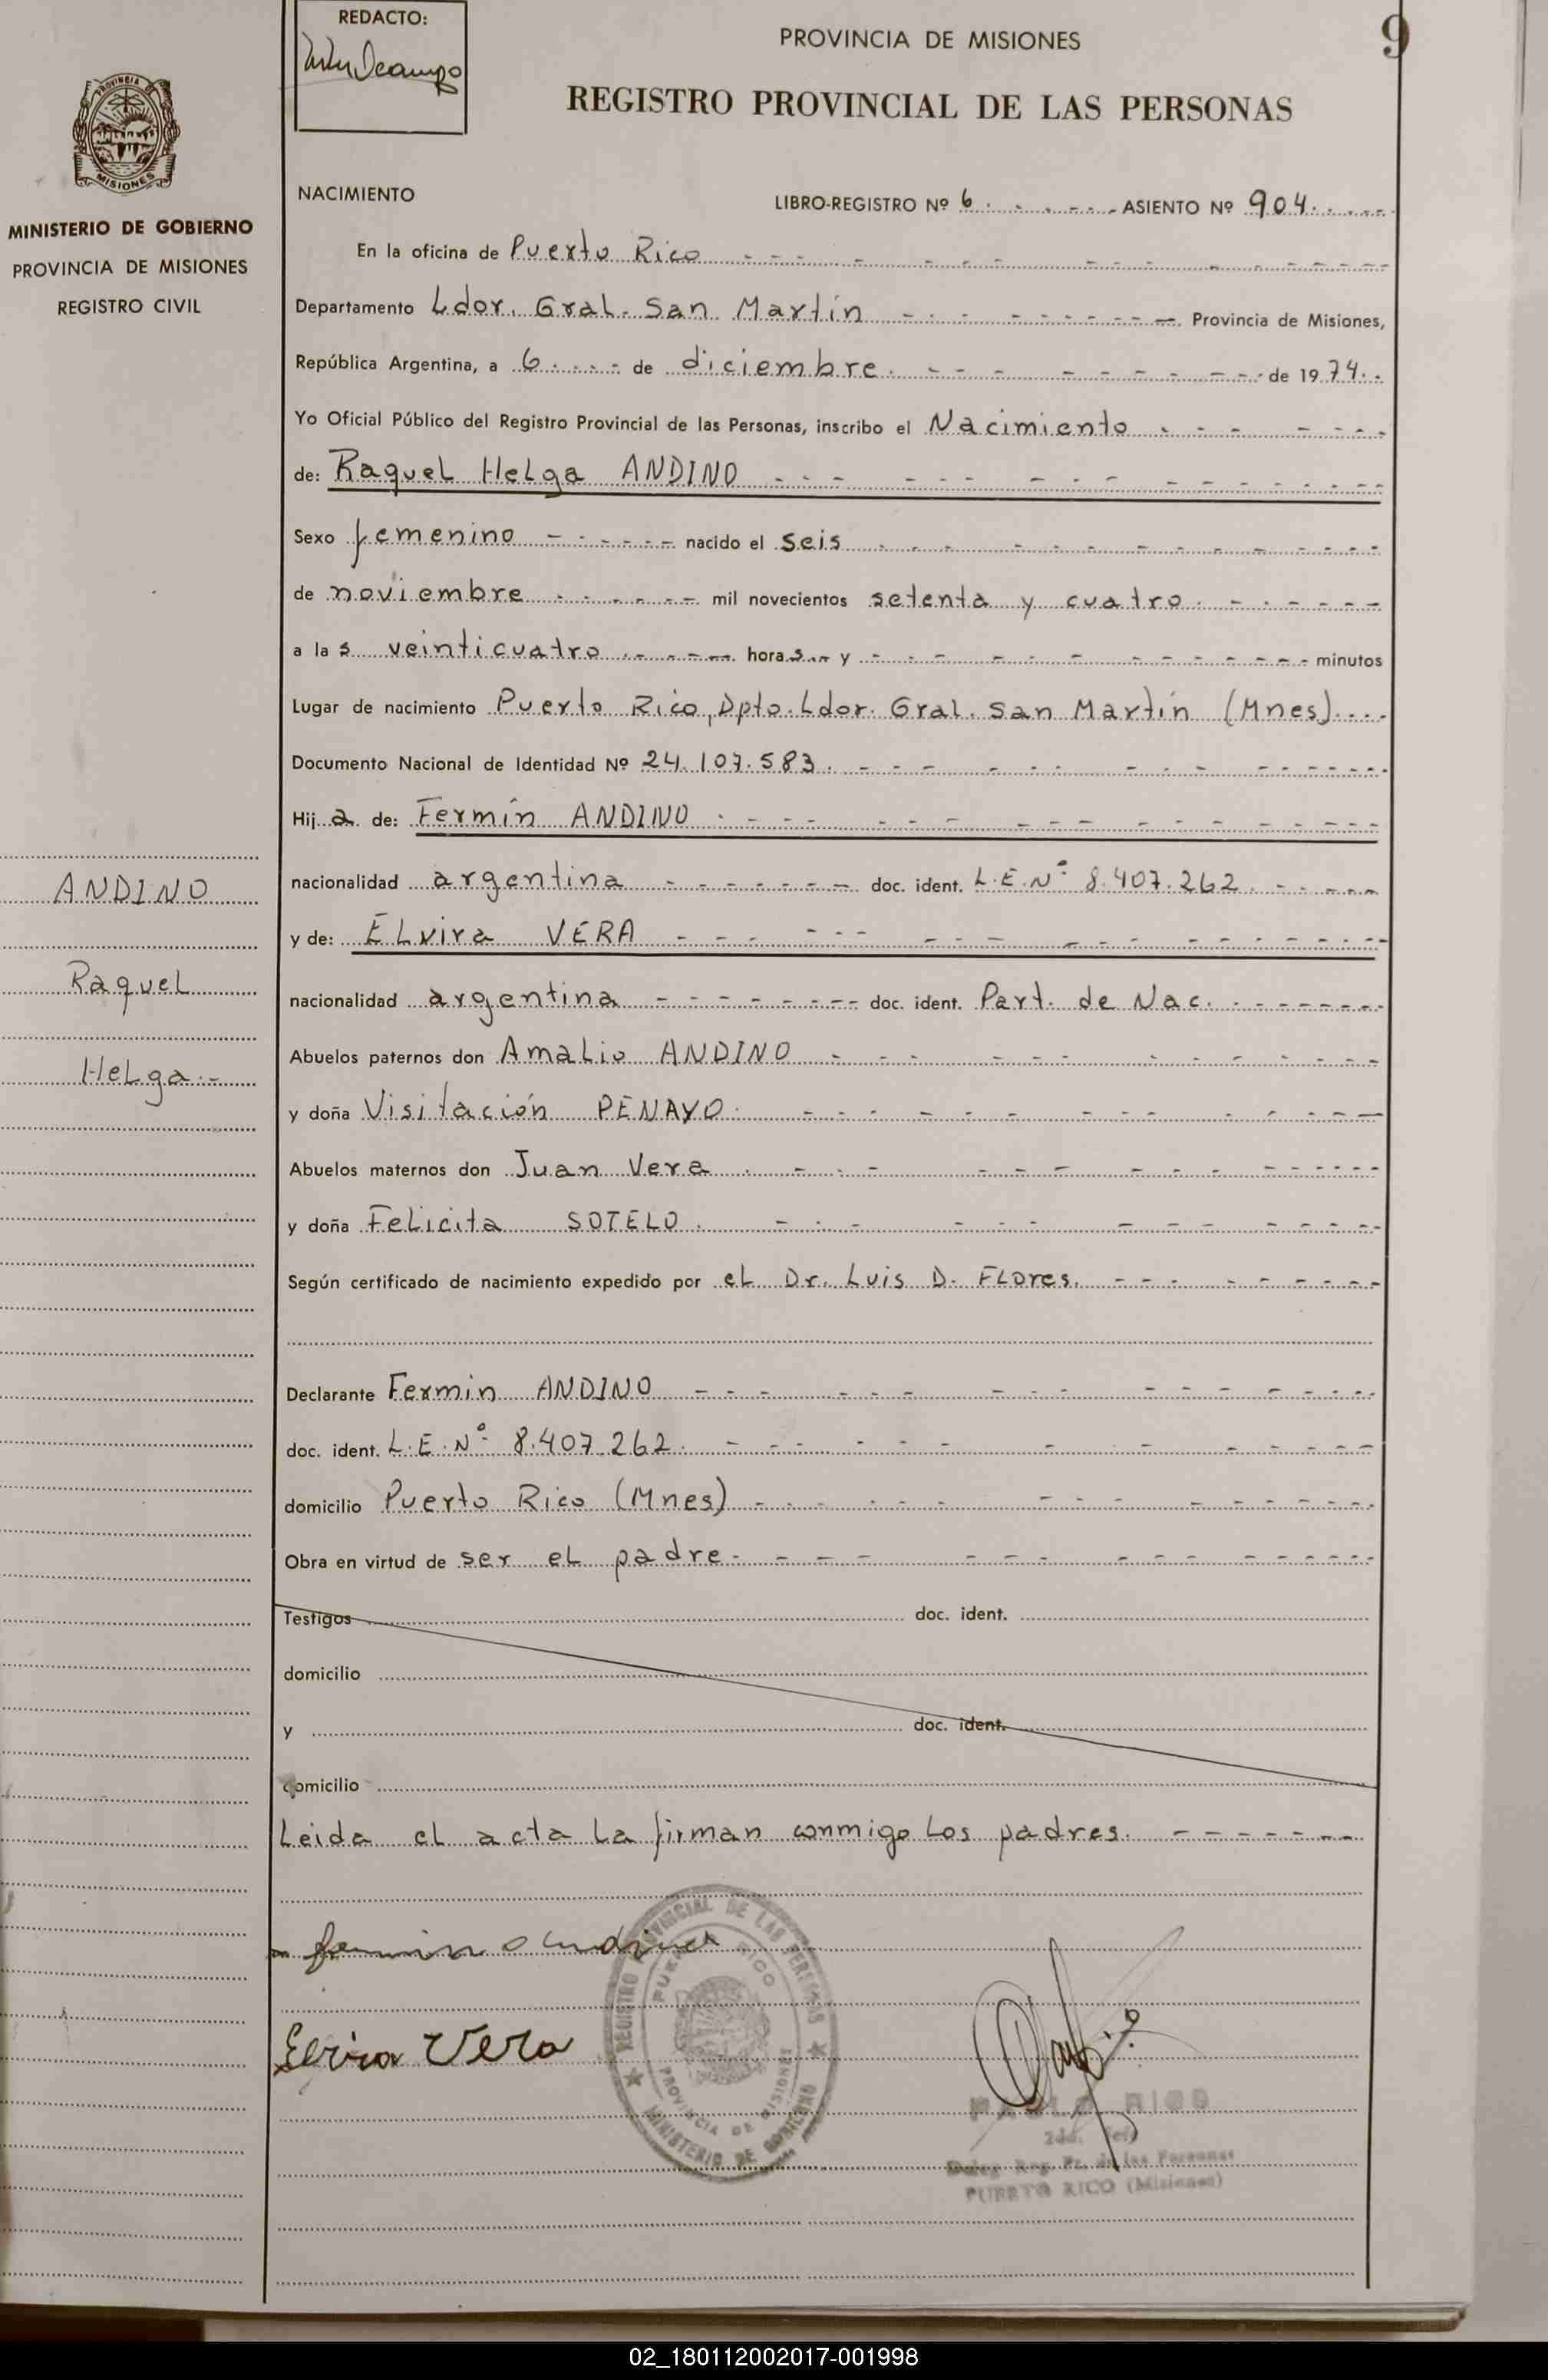 REDACTO:
PROVINCIA DE MISIONES
9
REGISTRO PROVINCIAL DE LAS PERSONAS
PROVINCIA DE
MISIONES
MINISTERIO DE GOBIERNO
PROVINCIA DE MISIONES
REGISTRO CIVIL
NACIMIENTO
LIBRO-REGISTRO Nº 6 ASIENTO Nº 904
En la oficina de Puerto Rico
Departamento Ldor. Gral. San Martín Provincia de Misiones,
República Argentina, a 6 de diciembre de 1974
Yo Oficial Público del Registro Provincial de las Personas, inscribo el Nacimiento
de: Raquel Helga ANDINO
Sexo femenino nacido el seis
de noviembre mil novecientos setenta y cuatro
a las veinticuatro horas y minutos
Lugar de nacimiento Puerto Rico, Dpto. Ldor. Gral. San Martín (Mnes)
Documento Nacional de Identidad Nº 24.107.583
Hija de: Fermín ANDINO
nacionalidad argentina doc. ident. L.E.Nº 8.407.262
y de: Elvira VERA
nacionalidad argentina doc. ident. Part. de Nac.
Abuelos paternos don Amalio ANDINO
y doña Visitación PENAYO
Abuelos maternos don Juan Vera
y doña Felicita SOTELO
Según certificado de nacimiento expedido por el Dr. Luis D. Flores.
Declarante Fermín ANDINO
doc. ident. L.E.Nº 8.407.262
domicilio Puerto Rico (Mnes)
Obra en virtud de ser el padre
Testigos doc. ident.
domicilio
y doc. ident.
domicilio
Leida el acta la firman conmigo los padres.
ANDINO
Raquel
Helga.-
REGISTRO PROVINCIAL DE LAS PERSONAS
PUERTO RICO
PROVINCIA DE MISIONES
MINISTERIO DE GOBIERNO
fermin andino
Elvira Vera
PUERTO RICO (Misiones)
02_180112002017-001998